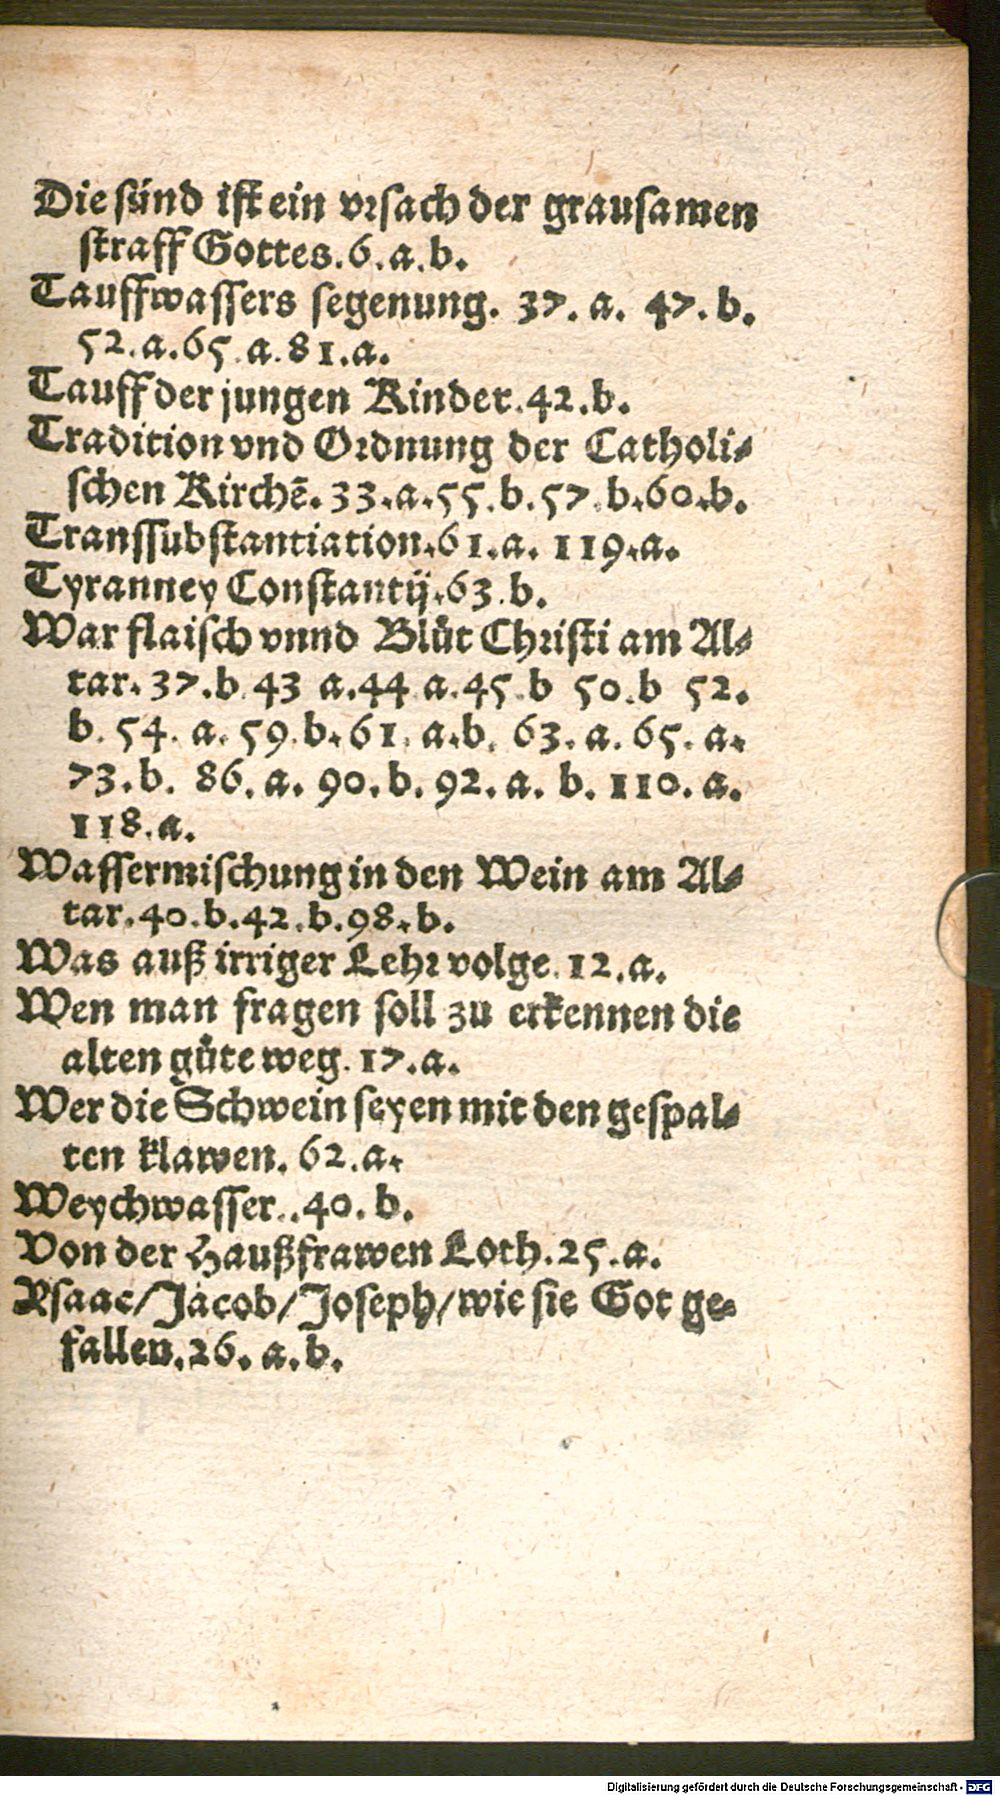 Die sünd ist ein vrsach der grausamen
straff Gottes. 6. a. b.
Tauffwassers segenung. 37. a. 47. b.
52. a. 65 a. 81. a.
Tauff der jungen Kinder. 42. b.
Tradition vnd Ordnung der Catholi⸗
schen Kirchē. 33. a. 55. b. 57. b. 60. b.
Transsubstantiation. 61. a. 119. a.
Tyranney Constantij. 63. b.
War flaisch vnnd Blůt Christi am Al⸗
tar. 37. b 43 a. 44 a. 45. b 50. b 52.
b. 54. a. 59. b. 61. a. b. 63. a. 65. a.
73. b. 86. a. 90. b. 92. a. b. 110. a.
118. a.
Wassermischung in den Wein am Al⸗
tar. 40. b. 42. b. 98. b.
Was auß irriger Lehr volge. 12. a.
Wen man fragen soll zu erkennen die
alten gůte weg. 17. a.
Wer die Schwein seyen mit den gespal⸗
ten klawen. 62. a.
Weychwasser. . 40. b.
Von der Haußfrawen Loth. 25. a.
Rsaac/ Jacob/ Joseph/ wie sie Got ge⸗
fallen. 26. a. b.
Digitalisierung gefördert durch die Deutsche Forschungsgemeinschaft - DFG